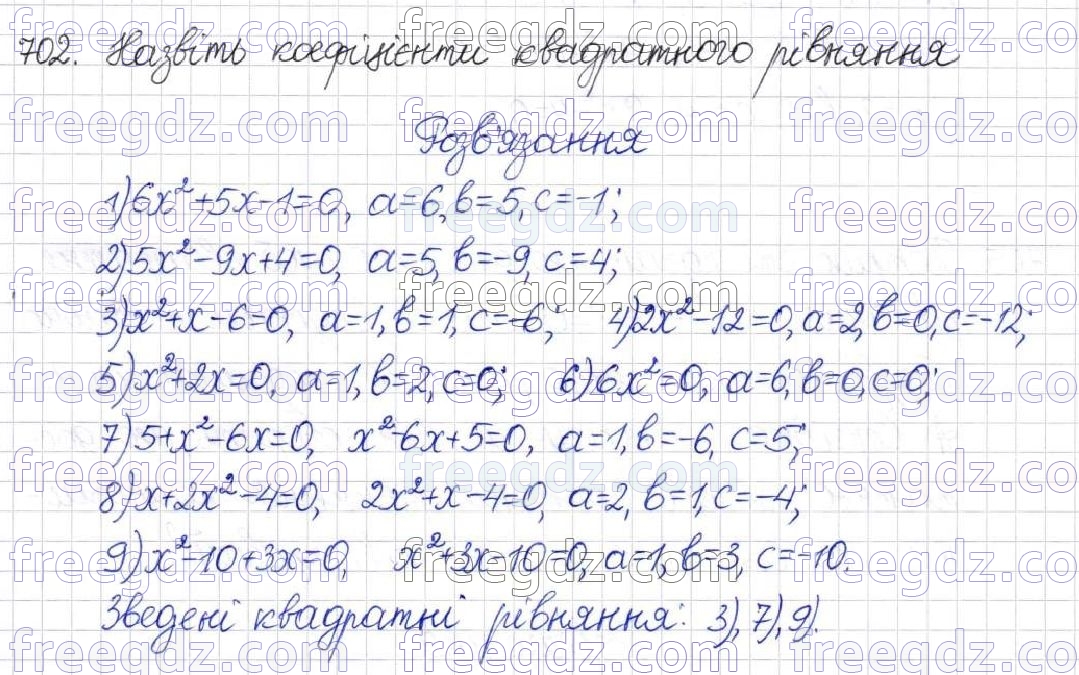 702. Назвіть коефіцієнти квадратного рівняння
Розв'язання
1) 6x² + 5x - 1 = 0, a = 6, b = 5, c = -1;
2) 5x² - 9x + 4 = 0, a = 5, b = -9, c = 4;
3) x² + x - 6 = 0, a = 1, b = 1, c = -6; 4) 2x² - 12 = 0, a = 2, b = 0, c = -12;
5) x² + 2x = 0, a = 1, b = 2, c = 0; 6) 6x² = 0, a = 6, b = 0, c = 0;
7) 5 + x² - 6x = 0, x² - 6x + 5 = 0, a = 1, b = -6, c = 5;
8) x + 2x² - 4 = 0, 2x² + x - 4 = 0, a = 2, b = 1, c = -4;
9) x² - 10 + 3x = 0, x² + 3x - 10 = 0, a = 1, b = 3, c = -10.
Зведені квадратні рівняння: 3), 7), 9).
freegdz.com